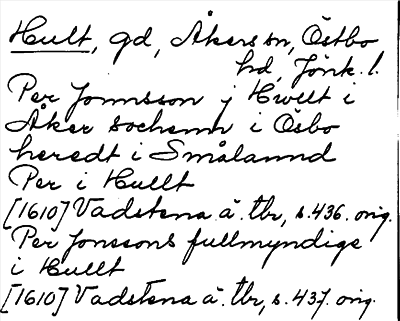 Hult, gd, Åkers sn, Östbo
hd, Jönk. l.
Per Jonnsson j Hwlt i
Åker sochenn i Ösbo
heredt i Smålannd
Per i Hullt
[1610] Vadstena ä. tbr, s. 436. orig.
Per Jonssons fullmyndige
i Hullt
[1610] Vadstena ä. tbr, s. 437. orig.